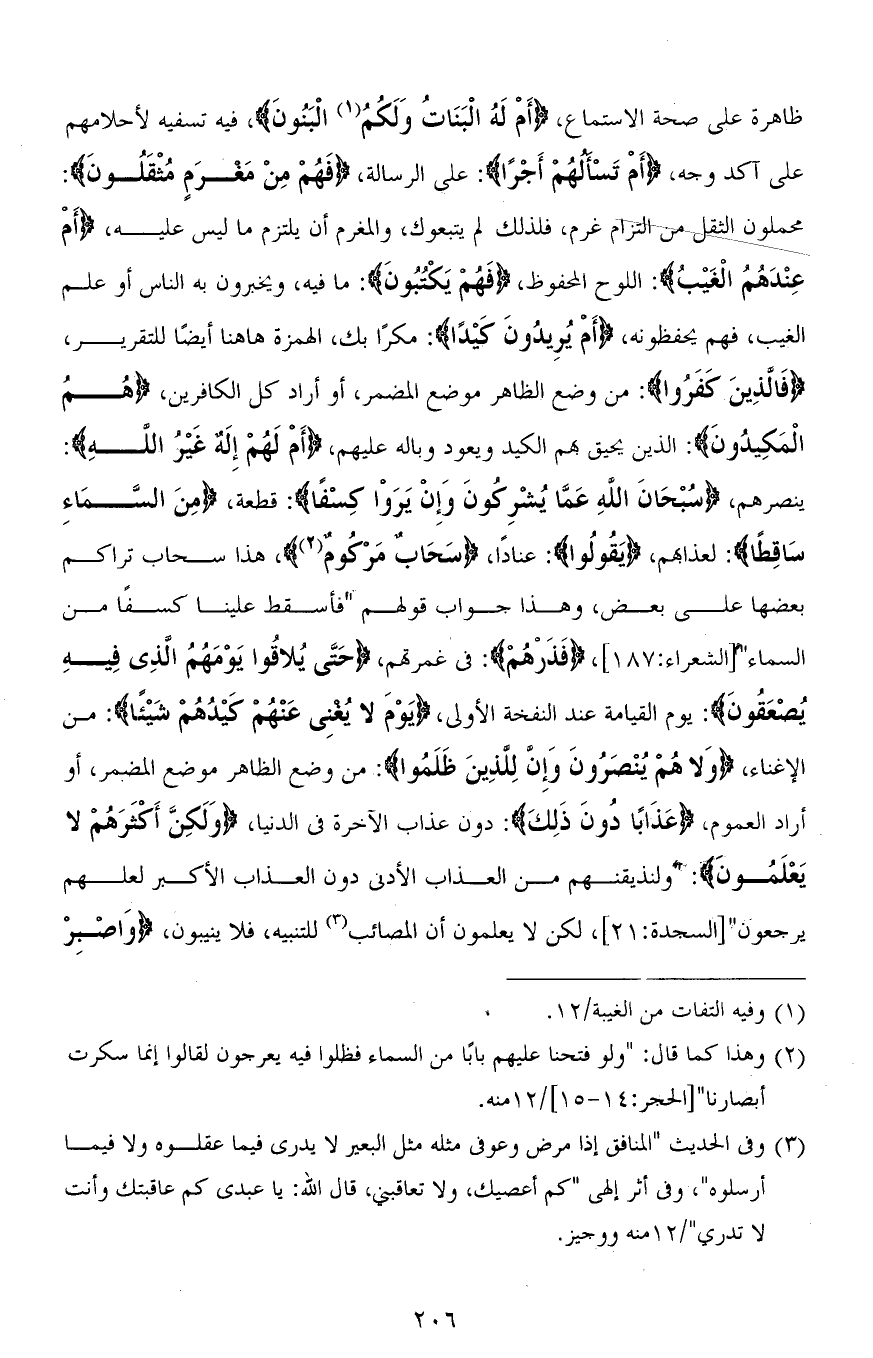 ظاهرة على صحة الاستماع، ﴿أَمْ لَهُ الْبَنَاتُ وَلَكُمُ(١) الْبَنُونَ﴾، فيه تسفيه لأحلامهم
على آكد وجه، ﴿أَمْ تَسْأَلُهُمْ أَجْرًا﴾: على الرسالة، ﴿فَهُمْ مِنْ مَغْرَمٍ مُثْقَلُونَ﴾:
محملون الثقل من التزام غرم، فلذلك لم يتبعوك، والمغرم أن يلتزم ما ليس عليه، ﴿أَمْ
عِنْدَهُمُ الْغَيْبُ﴾: اللوح المحفوظ، ﴿فَهُمْ يَكْتُبُونَ﴾: ما فيه، ويخبرون به الناس أو علم
الغيب، فهم يحفظونه، ﴿أَمْ يُرِيدُونَ كَيْدًا﴾: مكرًا بك، الهمزة هاهنا أيضًا للتقرير،
﴿فَالَّذِينَ كَفَرُوا﴾: من وضع الظاهر موضع المضمر، أو أراد كل الكافرين، ﴿هُمُ
الْمَكِيدُونَ﴾: الذين يحيق بهم الكيد ويعود وباله عليهم، ﴿أَمْ لَهُمْ إِلَهٌ غَيْرُ اللَّهِ﴾:
ينصرهم، ﴿سُبْحَانَ اللَّهِ عَمَّا يُشْرِكُونَ وَإِنْ يَرَوْا كِسْفًا﴾: قطعة، ﴿مِنَ السَّمَاءِ
سَاقِطًا﴾: لعذابهم، ﴿يَقُولُوا﴾: عنادًا، ﴿سَحَابٌ مَرْكُومٌ(٢)﴾، هذا سحاب تراكم
بعضها على بعض، وهذا جواب قولهم "فأسقط علينا كسفًا من
السماء"[الشعراء:١٨٧]، ﴿فَذَرْهُمْ﴾: فى غمرتهم، ﴿حَتَّى يُلاقُوا يَوْمَهُمُ الَّذِى فِيهِ
يُصْعَقُونَ﴾: يوم القيامة عند النفخة الأولى، ﴿يَوْمَ لا يُغْنِى عَنْهُمْ كَيْدُهُمْ شَيْئًا﴾: من
الإغناء، ﴿وَلا هُمْ يُنْصَرُونَ وَإِنَّ لِلَّذِينَ ظَلَمُوا﴾: من وضع الظاهر موضع المضمر، أو
أراد العموم، ﴿عَذَابًا دُونَ ذَلِكَ﴾: دون عذاب الآخرة فى الدنيا، ﴿وَلَكِنَّ أَكْثَرَهُمْ لا
يَعْلَمُونَ﴾: "ولنذيقنهم من العذاب الأدنى دون العذاب الأكبر لعلهم
يرجعون"[السجدة:٢١]، لكن لا يعلمون أن المصائب(٣) للتنبيه، فلا ينيبون، ﴿وَاصْبِرْ
(١) وفيه التفات من الغيبة/١٢.
(٢) وهذا كما قال: "ولو فتحنا عليهم بابًا من السماء فظلوا فيه يعرجون لقالوا إنما سكرت
أبصارنا"[الحجر:١٤-١٥]/١٢منه.
(٣) وفى الحديث "المنافق إذا مرض وعوفى مثله مثل البعير لا يدرى فيما عقلوه ولا فيما
أرسلوه"، وفى أثر إلهى "كم أعصيك، ولا تعاقبني، قال الله: يا عبدى كم عاقبتك وأنت
لا تدري"/١٢منه ووجيز.
٢٠٦